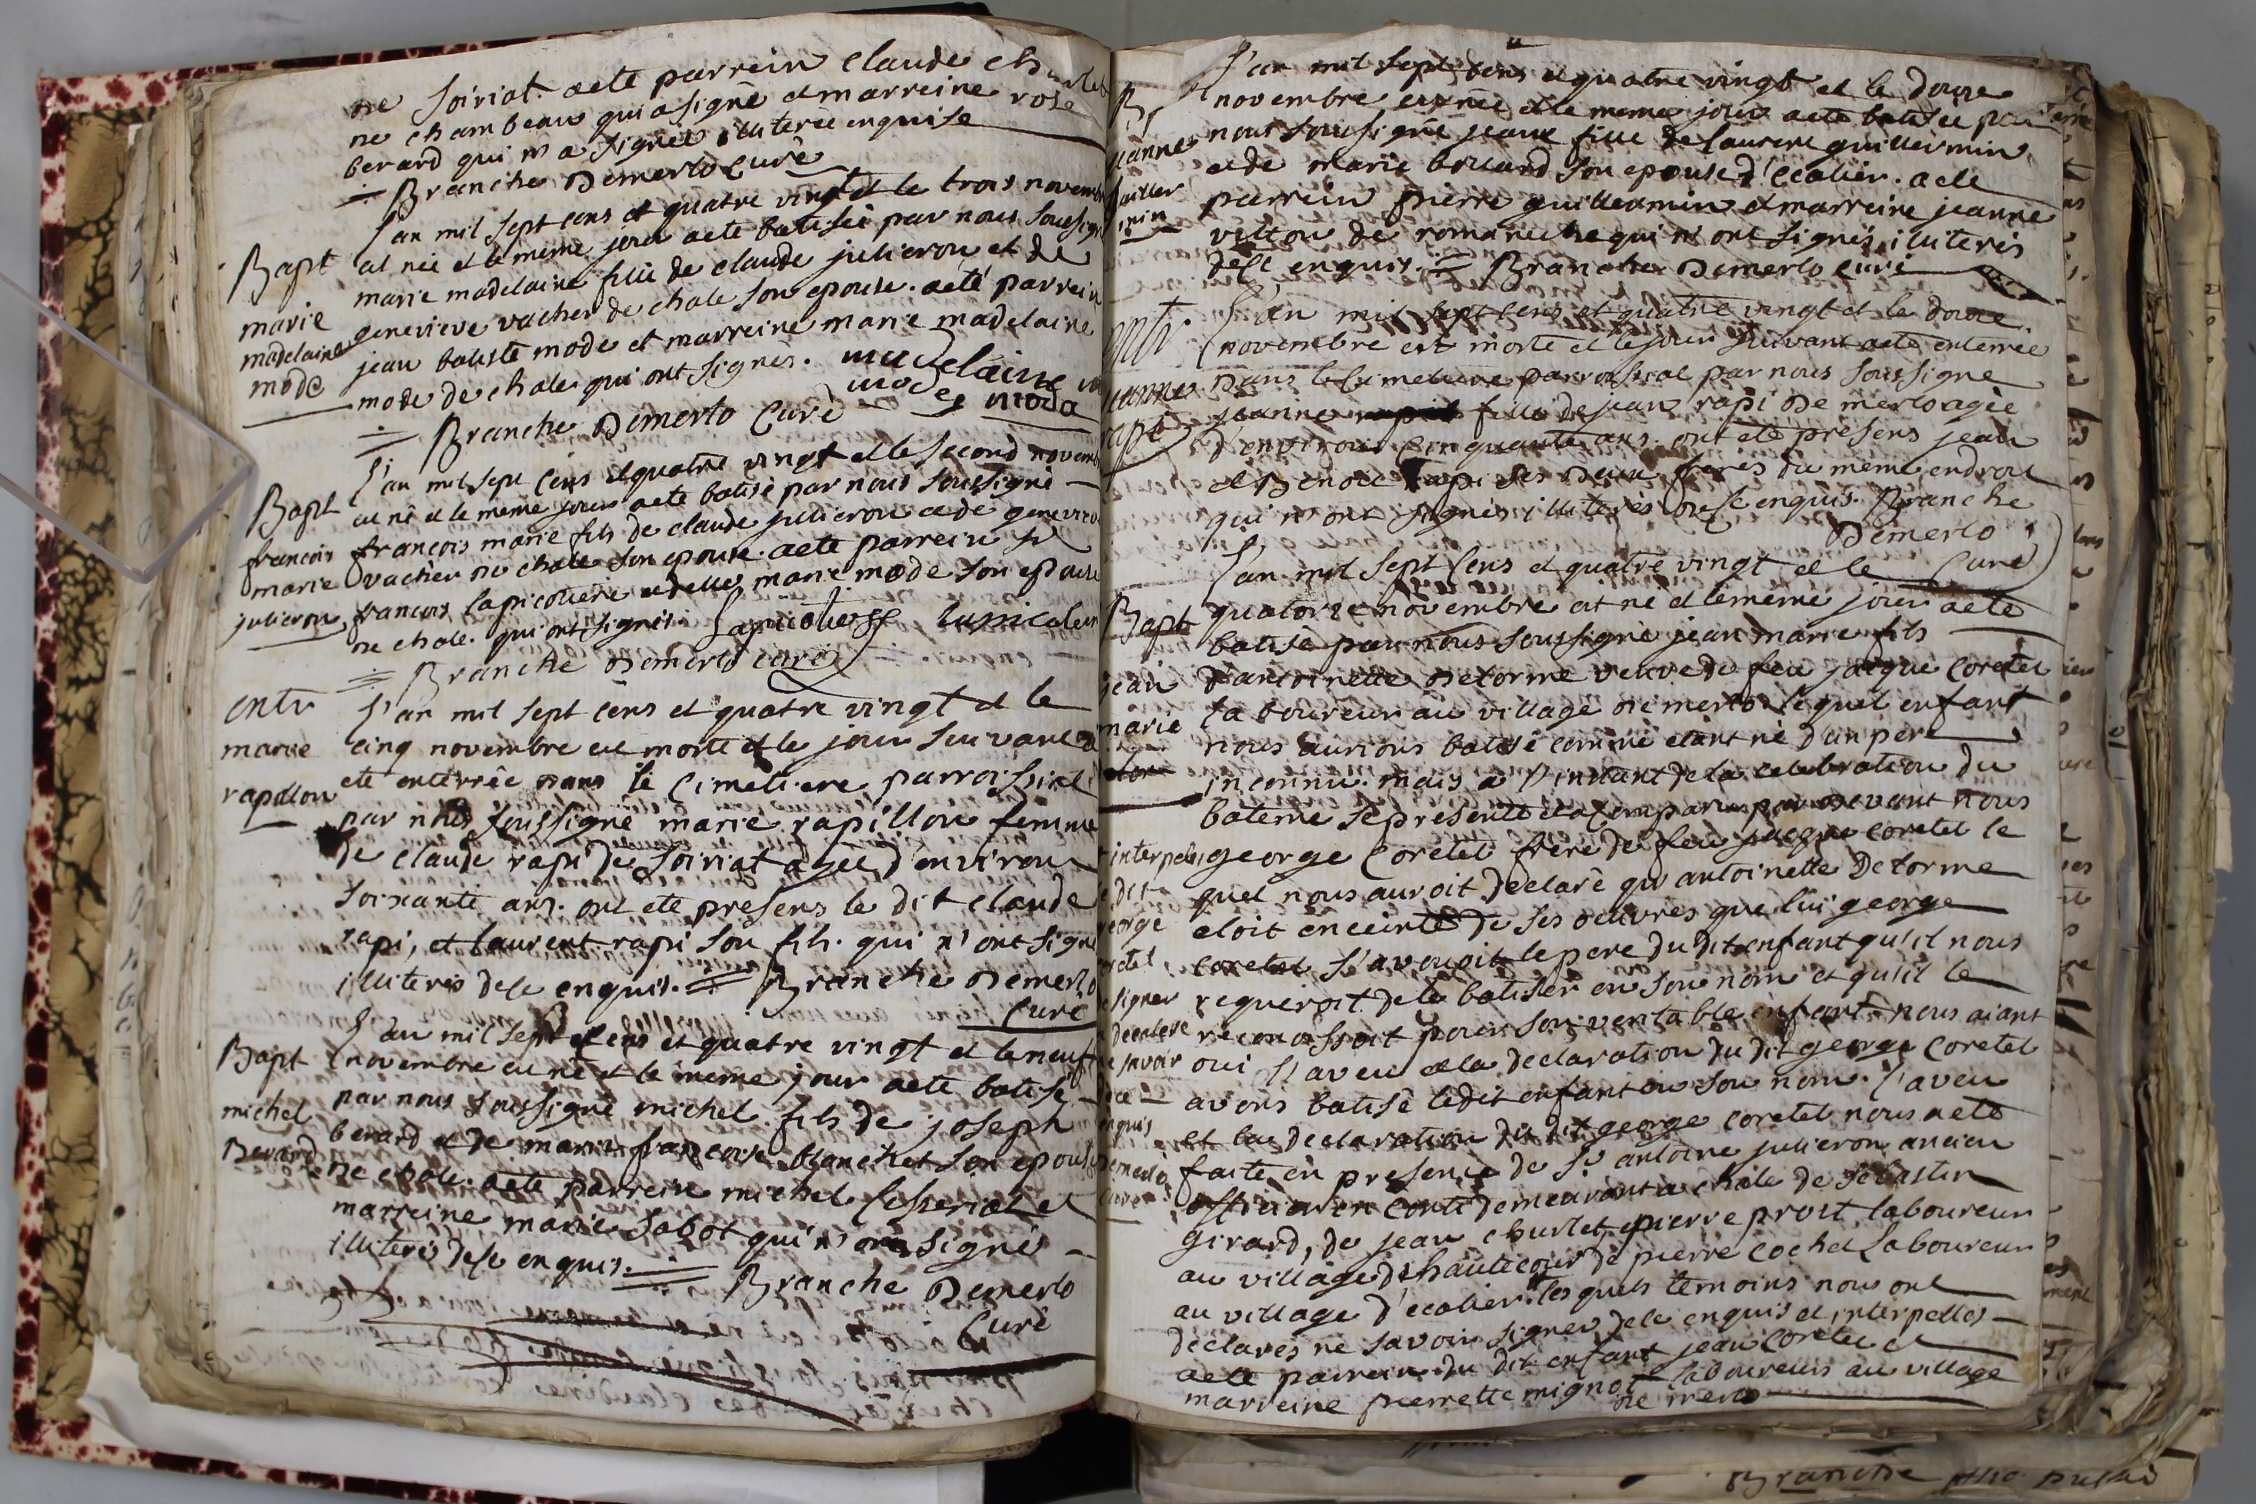 de soiriat. aete parrein claude churlet
de chambeau qui a signé et marreine rose
berard qui n'a signée illiterée enquise
Branche Demerlo curé
L'an mil sept cens et quatre vingt et le trois novembre
Bapt
est née et le meme jour aete batisée par nous soussigné
marie madelaine fille de claude julieron et de
marie
genevieve vacher de chale son epouse. aeté parrein
madelaine
jean batiste mode et marreine marie madelaine
mode
mode de chale qui ont signés. madelaine
mode mode
Branche Demerlo Curé
L'an mil sept cens et quatre vingt et le second novembre
Bapt
est né et le meme jour aete batisé par nous soussigné
francois
francois marie fils de claude julieron et de genevieve
marie
vacher de chale son epouse. aete parrein sr
julieron
francois lapicotiere et delle marie mode son epouse
de chale. qui ont signés.
Branche Demerlo curé
entr
L'an mil sept cens et quatre vingt et le
marie
cinq novembre est morte et le jour suivant a
rapillon
ete enterrée dans le cimetiere parroissial
par nous soussigné marie rapillon femme
de claude rapi de soiriat agée d'environ
soixante ans. ont ete presens le dit claude
rapi, et laurent rapi son fils. qui n'ont signé
illiterés de ce enquis. Branche Demerlo
Curé
L'an mil sept cens et quatre vingt et le neuf
Bapt
novembre est né et le meme jour aete batisé
michel
par nous soussigné michel fils de joseph
Berard
berard et de marie francoise blanchet son epouse
de chale. aete parrein michel et
marreine marie sabot qui n'ont signés
illiterés de ce enquis. Branche Demerlo
Curé
L'an mil sept cens et quatre vingt et le douze
novembre est née et le meme jour aete batisée par
jeanne
nous soussigné jeanne fille de laurent guillermin
guiller
et de marie bouvard son epouse d'ecalier. aete
min
parrein pierre guillermin et marreine jeanne
vitton de romaneche qui n'ont signés illiterés
de ce enquis. Branche Demerlo curé
entr
L'an mil sept cens et quatre vingt et le douze
novembre est morte et le jour suivant aete enterrée
jeanne
dans le cimetiere parroissial par nous soussigné
rapi
jeanne fille de jean rapi de merlo agée
d'environ cinquante ans. ont eté presens jean
et benoit rapi ses deux freres du meme endroit
qui n'ont signés illiterés de ce enquis. Branche
Demerlo
Curé
L'an mil sept cens et quatre vingt et le
Bapt
quatorze novembre est né et le meme jour aeté
batisé par nous soussigné jean marie fils
jean
d'antoinette Detorme veuve de feu jacque coretet
marie
laboureur au village de merlo. lequel enfant
nous aurions batisé comme etant né d'un pere
inconnu. mais a l'instant de la celebration du
bateme se presente et a comparu par devant nous
interpelé
george coretet frere de feu jacque coretet le
le dit
quel nous auroit declaré qu'antoinette Detorme
george
etoit enceinte de ses oeuvres que lui george
coretet
coretet s'avouoit le pere du dit enfant qu'il nous
de signer
requeroit de le batiser en son nom et qu'il le
a declaré
reconoissoit pour son veritable enfant. nous aiant
ne savoir
oui l'aveu et la declaration du dit george coretet
de ce
avons batisé ledit enfant en son nom. l'aveu
enquis
et la declaration du dit george coretet nous aeté
Demerlo
faite en presence de sr antoine julieron ancien
curé
demeurant a chale de sebastien
girard, de jean churlet, pierre prost laboureur
au village d'hautecour de pierre cochet laboureur
au village d'ecalier. lesquels temoins nous ont
declarés ne savoir signer de ce enquis et interpellés
aete parrein du dit enfant jean coretet et
marreine pierrette mignot laboureurs au village
de merlo
Branche